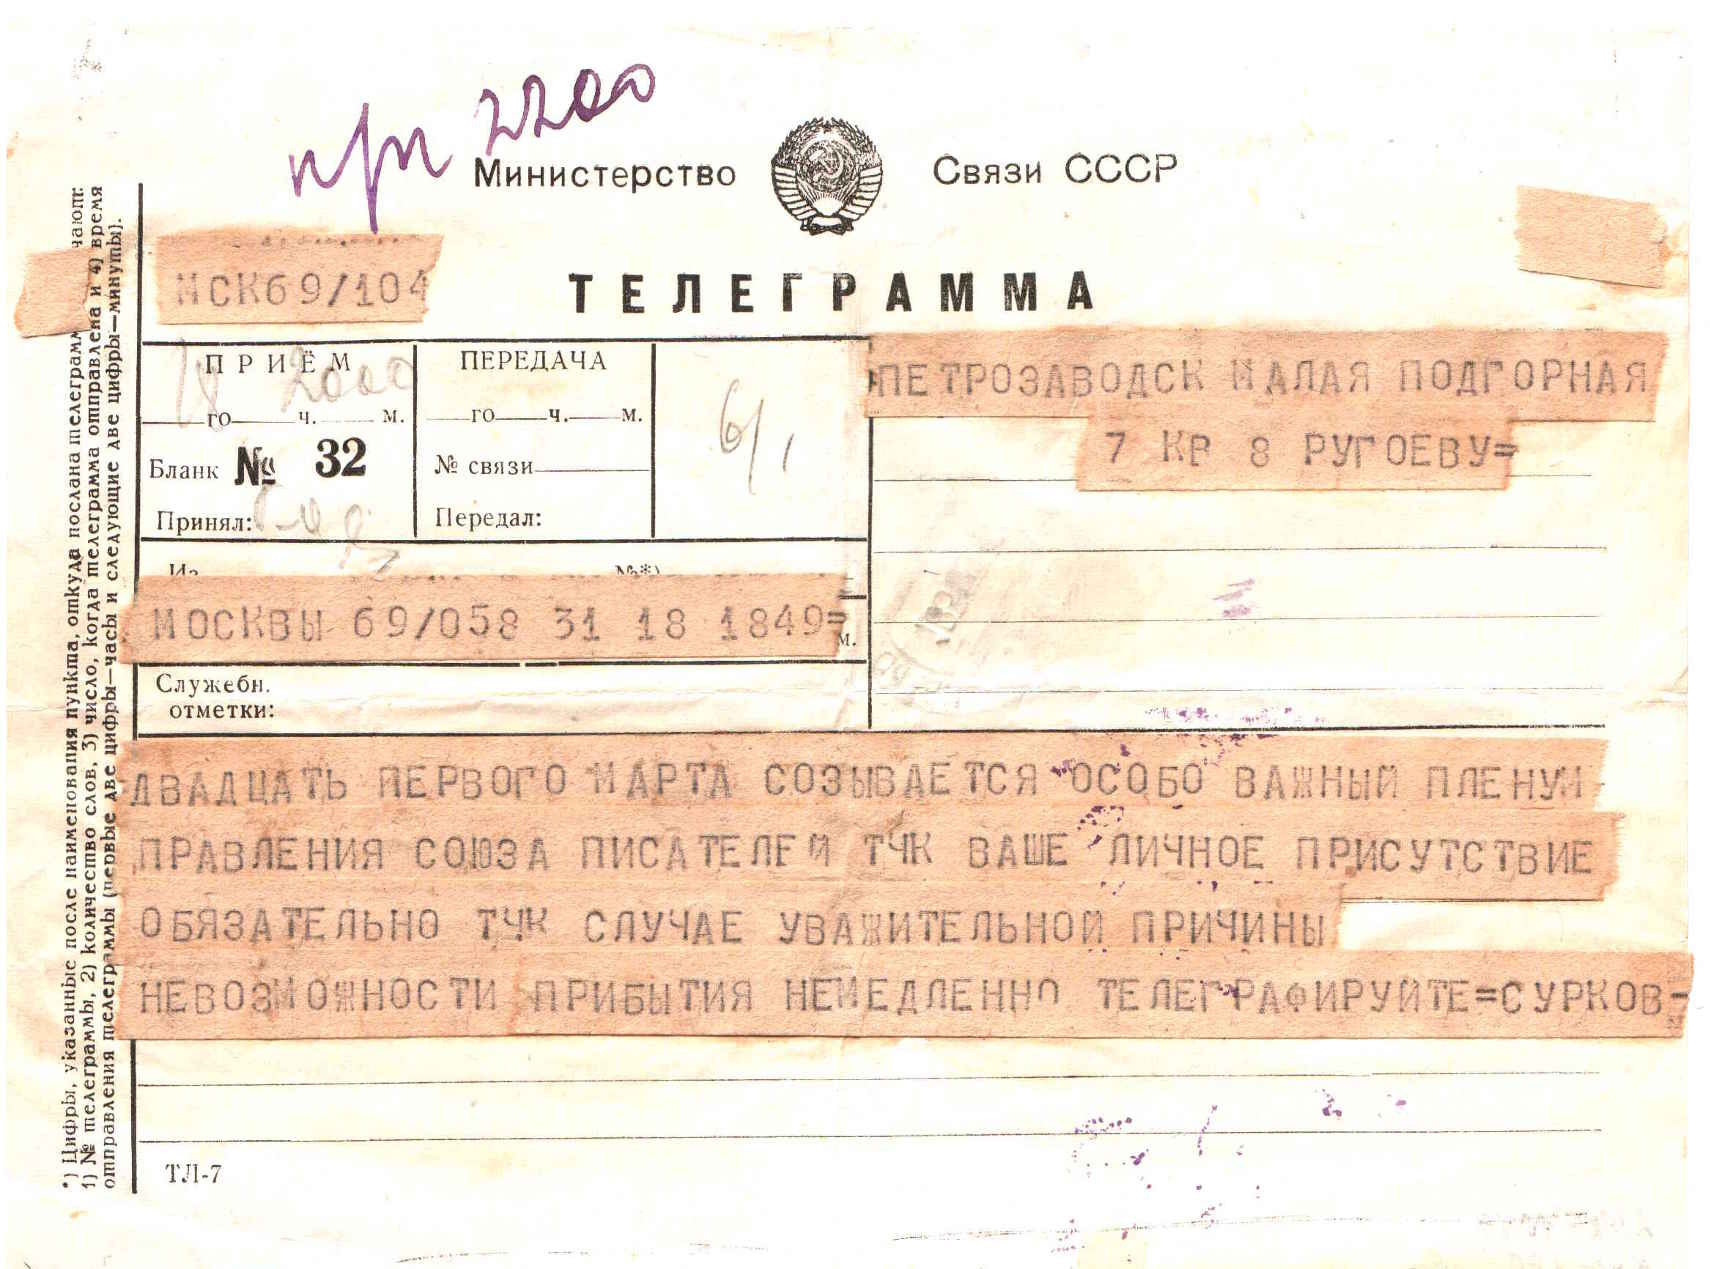 прп 2200
Министерство Связи СССР
МСК69/104
ТЕЛЕГРАММА
ПРИЁМ
18 2000
го ч. м.
Бланк № 32
Принял:
ПЕРЕДАЧА
го ч. м.
№ связи
Передал:
6/1
ПЕТРОЗАВОДСК МАЛАЯ ПОДГОРНАЯ
7 КВ 8 РУГОЕВУ=
Из №*)
МОСКВЫ 69/058 31 18 1849=
м.
Служебн.
отметки:
ДВАДЦАТЬ ПЕРВОГО МАРТА СОЗЫВАЕТСЯ ОСОБО ВАЖНЫЙ ПЛЕНУМ
ПРАВЛЕНИЯ СОЮЗА ПИСАТЕЛЕЙ ТЧК ВАШЕ ЛИЧНОЕ ПРИСУТСТВИЕ
ОБЯЗАТЕЛЬНО ТЧК СЛУЧАЕ УВАЖИТЕЛЬНОЙ ПРИЧИНЫ
НЕВОЗМОЖНОСТИ ПРИБЫТИЯ НЕМЕДЛЕННО ТЕЛЕГРАФИРУЙТЕ=СУРКОВ-
ТЛ-7
*) Цифры, указанные после наименования пункта, откуда послана телеграмм чают:
1) № телеграммы, 2) количество слов, 3) число, когда телеграмма отправлена и 4) время
отправления телеграммы (первые две цифры—часы и следующие две цифры—минуты).